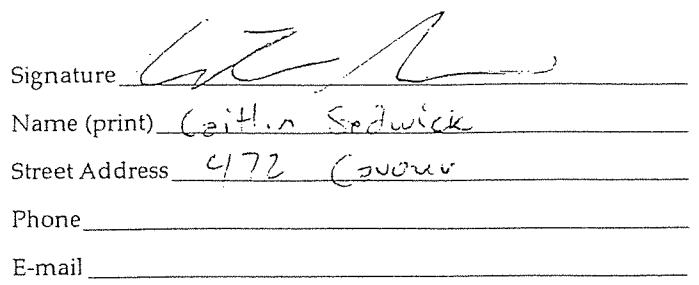 Signature
Name (print) Caitlin Sedwick
Street Address 472
Phone
E-mail